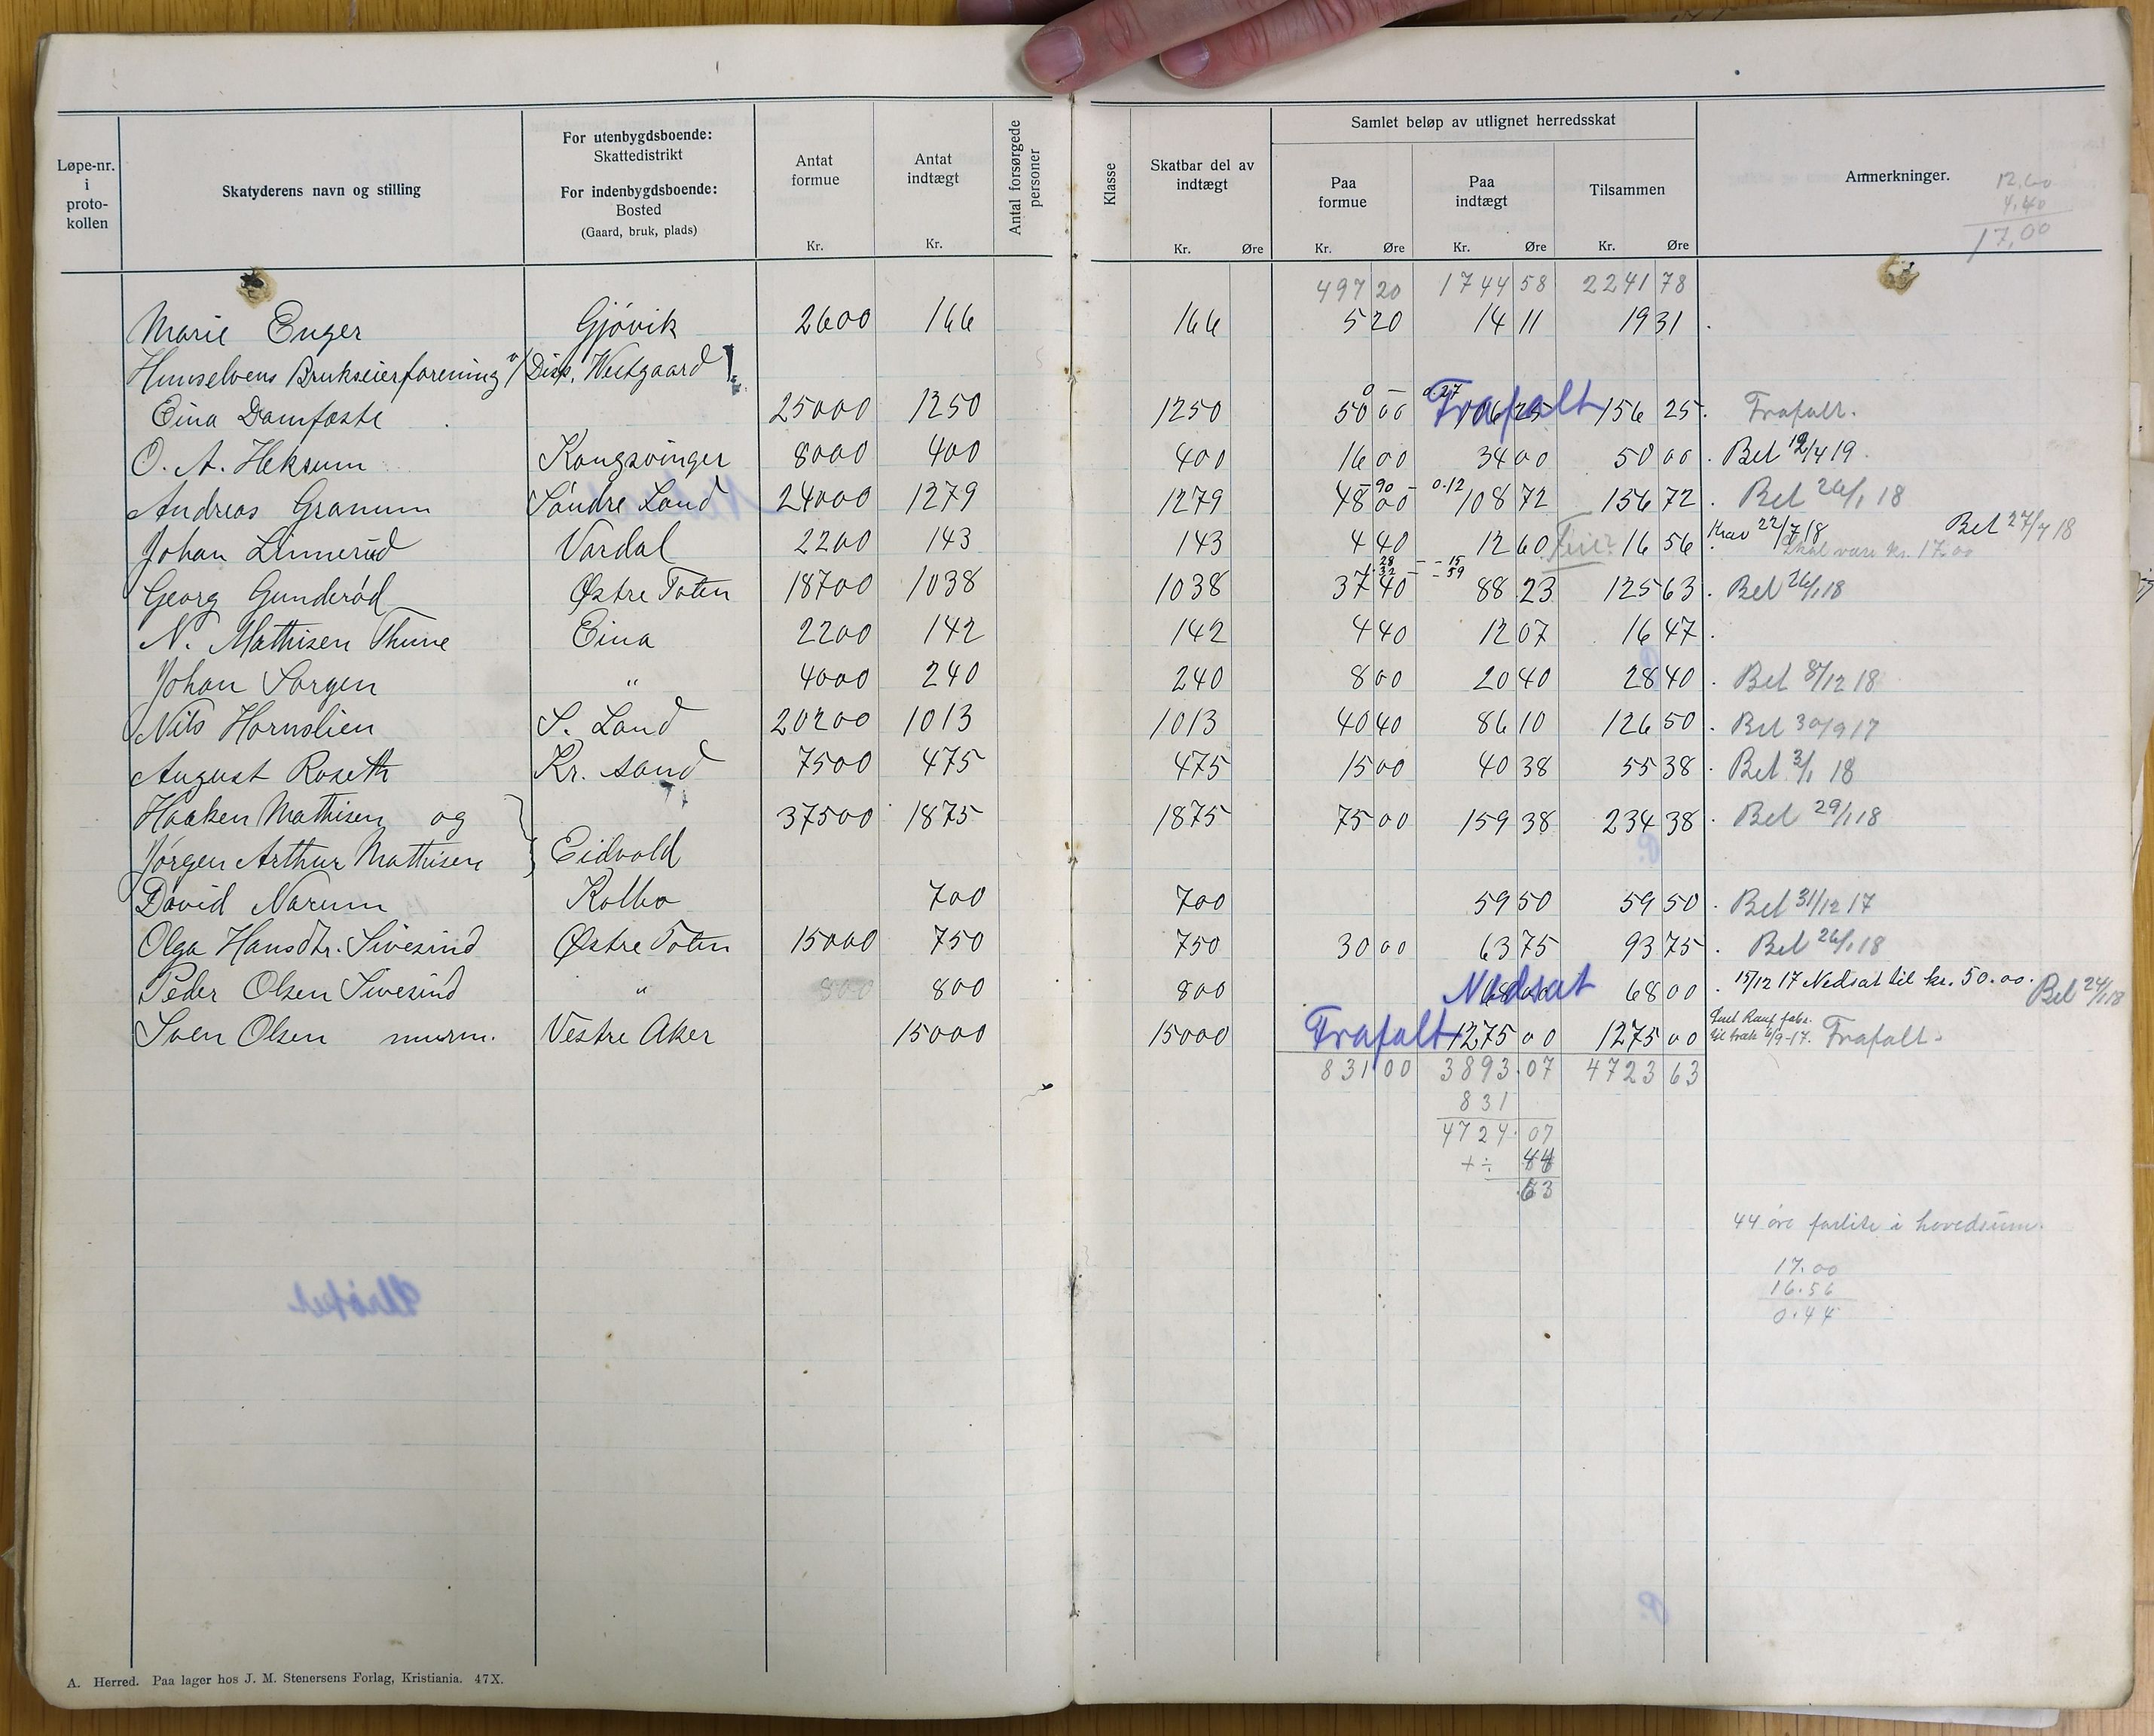 Løpe-nr. i proto-kollen
Skatyderens navn og stilling
For utenbygdsboende: Skattedistrikt
For indenbygdsboende: Bosted (Gaard, bruk, plads)
Antat formue Kr.
Antat indtægt Kr.
Antal forsørgede personer
Klasse
Skatbar del av indtægt Kr. Øre
Samlet beløp av utlignet herredsskat
Paa formue Kr. Øre
Paa indtægt Kr. Øre
Tilsammen Kr. Øre
Anmerkninger.
12.60
4.40
17,00
497 20 1744 58 2241 78
Marie Enger Gjøvik 2600 166 166 5 20 14 11 19 31
Hunselvens Brukseierforening v/ Disp. Westgaard
Eina Damfæste 25000 1250 1250 50 00 106 25 Frafalt 156 25 Frafalt.
O. A. Heksum Kongsvinger 8000 400 400 16 00 34 00 50 00 Bet 12/4 19
Andreas Granum Søndre Land 24000 1279 1279 48 00 108 72 156 72 Bet 26/1 18
Johan Linnerud Vardal 2200 143 143 4 40 12 60 16 56 Krav 22/7 18 Skal være kr. 17.00 Bet 27/7 18
Georg Gunderød Østre Toten 18700 1038 1038 37 40 88 23 125 63 Bet 26/1 18
N. Mathisen Thune Eina 2200 142 142 4 40 12 07 16 47
Johan Sorgen " 4000 240 240 8 00 20 40 28 40 Bet 8/12 18
Nils Hornslien S. Land 20200 1013 1013 40 40 86 10 126 50 Bet 30/9 17
August Roseth Kr. sand 7500 475 475 15 00 40 38 55 38 Bet 3/1 18
Haaken Mathisen og 37500 1875 1875 75 00 159 38 234 38 Bet 29/1 18
Jørgen Arthur Mathisen Eidvold
David Narum Kolbo 700 700 59 50 59 50 Bet 31/12 17
Olga Hansdtr. Sivesind Østre Toten 15000 750 750 30 00 63 75 93 75 Bet 26/1 18
Peder Olsen Sivesind " 800 800 800 68 00 Nedsat 68 00 15/12 17 Nedsat til kr. 50.00. Bet 24/1 18
Sven Olsen murm. Vestre Aker 15000 15000 Frafalt 1275 00 1275 00 Frafalt.
831 00 3893.07 4723 63
831
4724.07
+ ÷ 44
63
44 øre forlite i hovedsum.
17.00
16.56
0.44
A. Herred. Paa lager hos J. M. Stenersens Forlag, Kristiania. 47X.